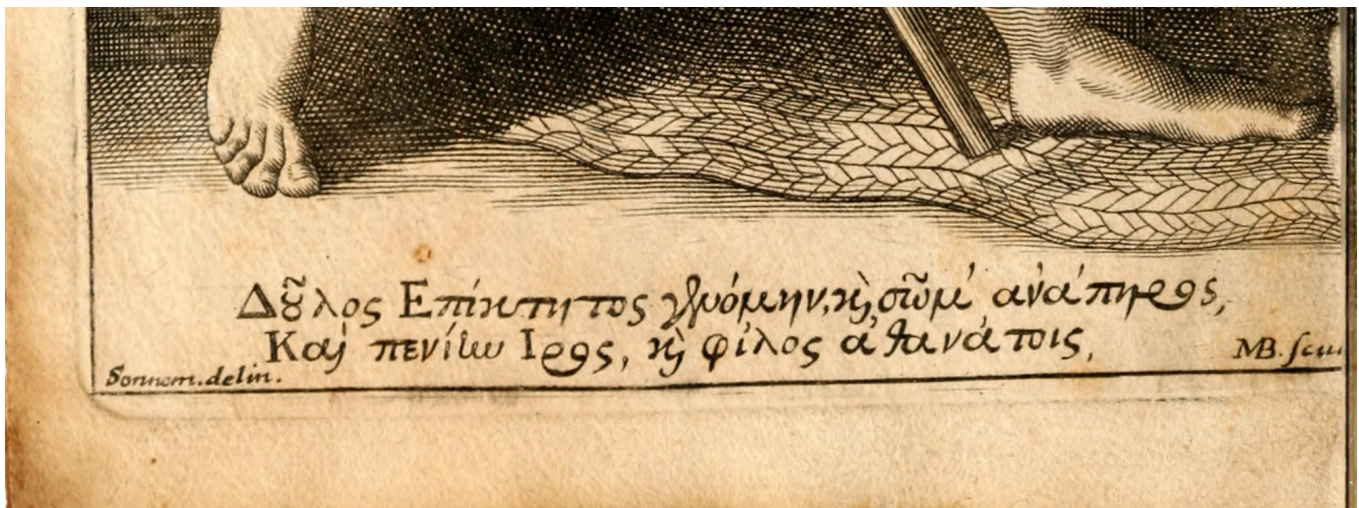 Δοῦλος Επίκτητος γενόμην, καὶ σῶμ' ανάπηρος,
Καὶ πενίην Ιρος, καὶ φίλος αθανάτοις,
Sonnem. delin.
MB. scu